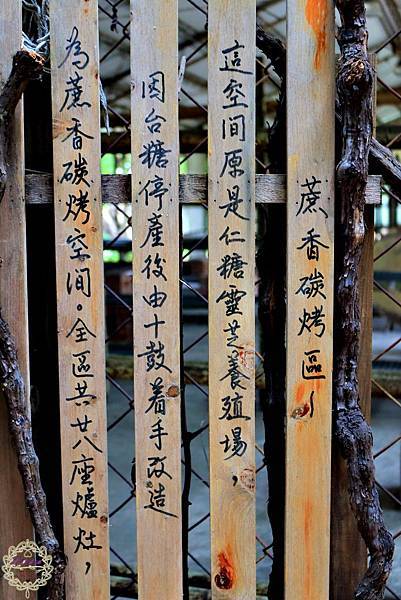 蔗香碳烤區~
這空間原是仁糖靈芝養殖場，
因台糖停產後由十鼓着手改造
為蔗香碳烤空間。全區共廿八座爐灶，